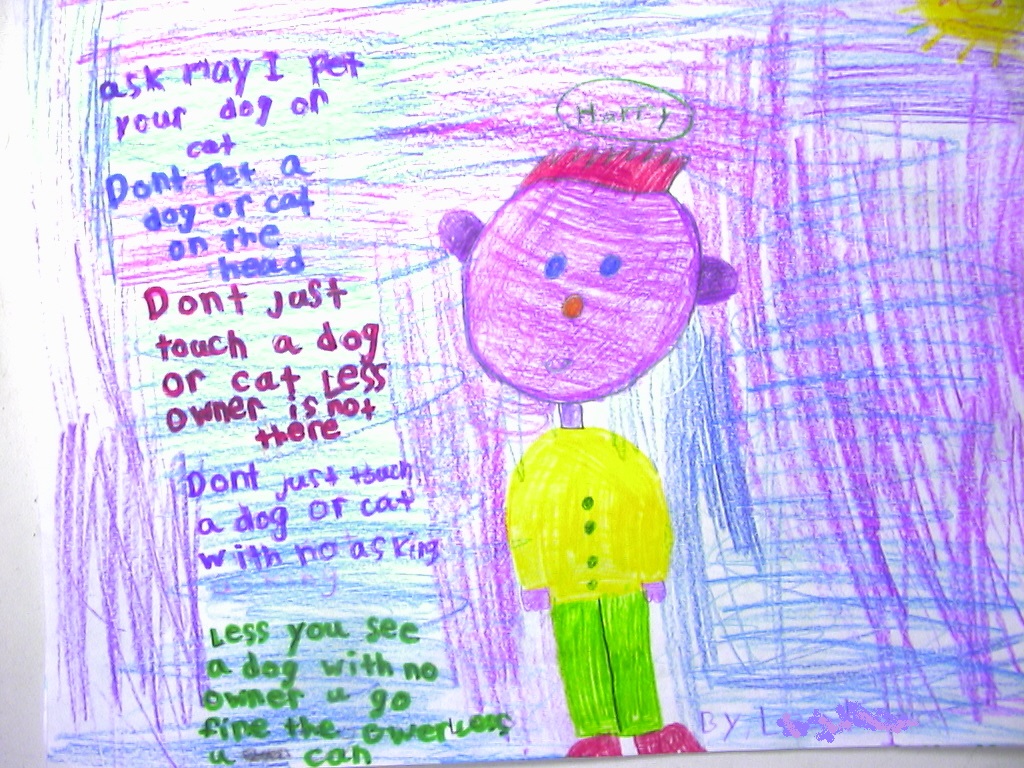 ask may I pet
your dog or
cat
Dont pet a
dog or cat
on the
head
Dont just
touch a dog
or cat Less
owner is not
there
Dont just touch
a dog or cat
with no asking
Less you see
a dog with no
owner u go
fine the owerLess
u can
Harry
By L